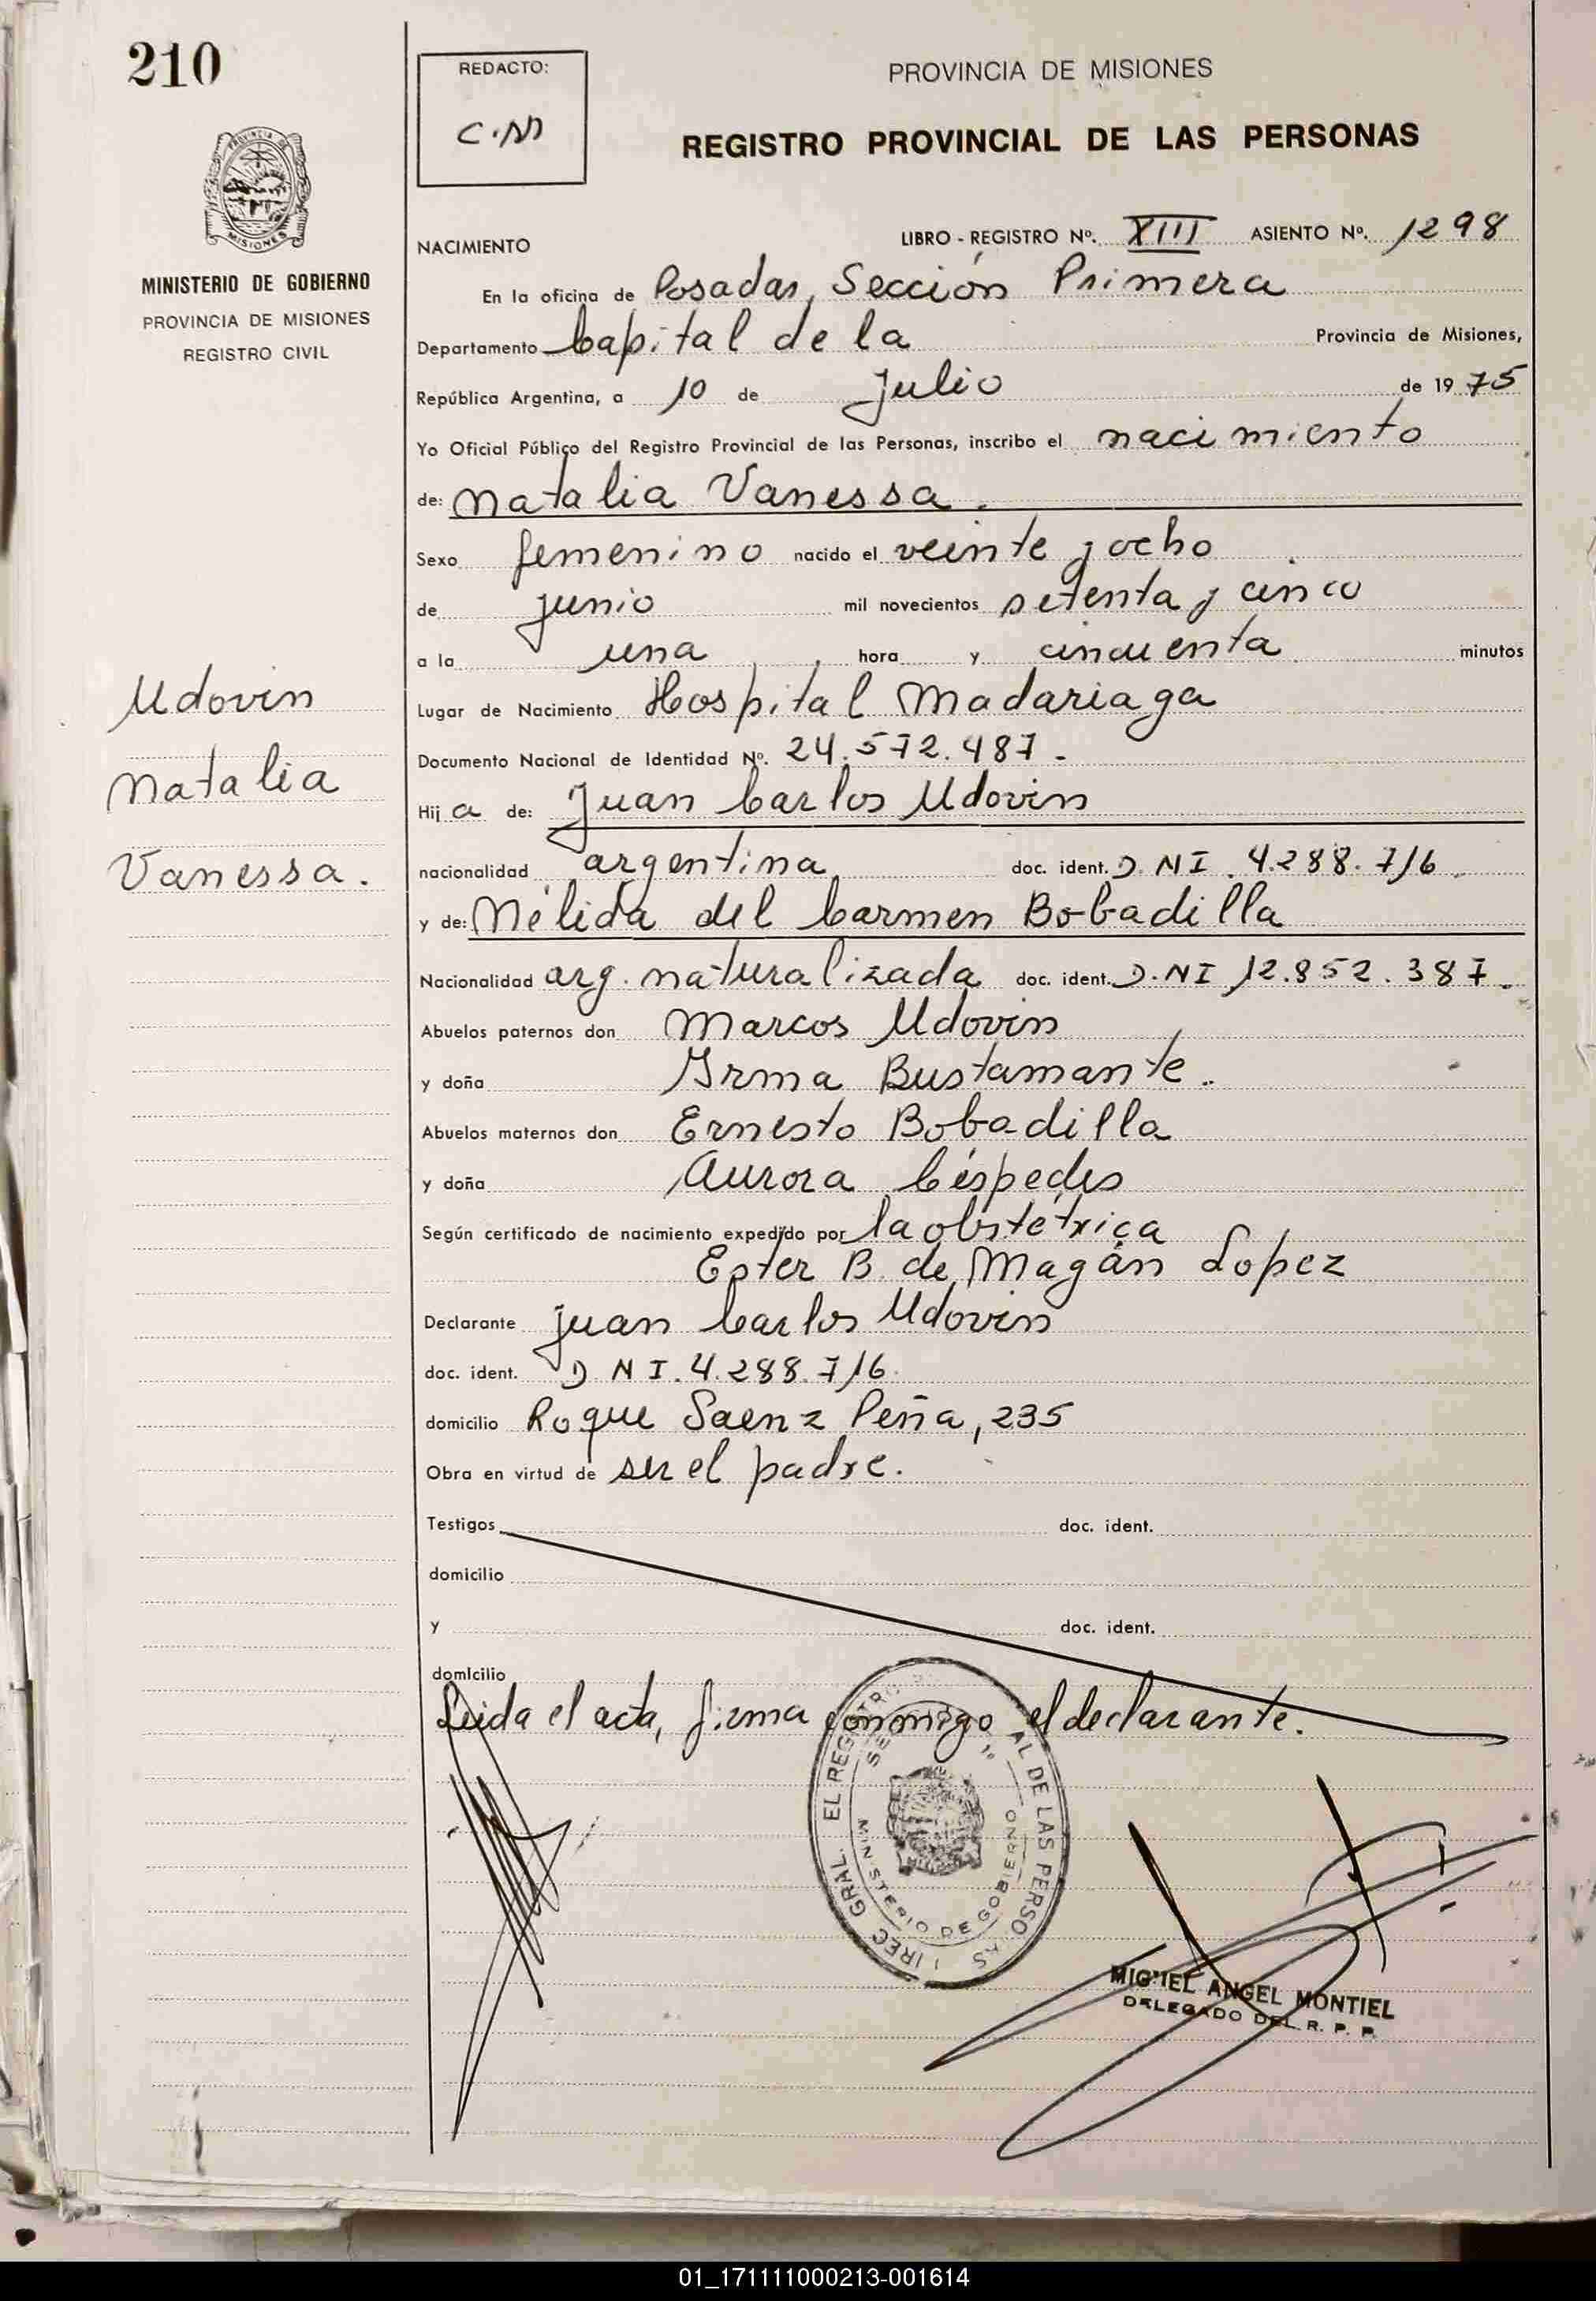 210
REDACTO:
PROVINCIA DE MISIONES
REGISTRO PROVINCIAL DE LAS PERSONAS
PROVINCIA DE
MISIONES
MINISTERIO DE GOBIERNO
PROVINCIA DE MISIONES
REGISTRO CIVIL
NACIMIENTO
LIBRO - REGISTRO Nº. XIII ASIENTO Nº. 1298
En la oficina de Posadas, Sección Primera
Departamento Capital de la Provincia de Misiones,
República Argentina, a 10 de Julio de 1975
Yo Oficial Público del Registro Provincial de las Personas, inscribo el nacimiento
de: Natalia Vanessa.
Sexo femenino nacido el veinte y ocho
de junio mil novecientos setenta y cinco
a la una hora y cincuenta minutos
Udovin
Lugar de Nacimiento Hospital Madariaga
Documento Nacional de Identidad Nº. 24.572.487.-
Natalia
Hija de: Juan Carlos Udovin
Vanessa.
nacionalidad argentina doc. ident. D.NI. 4.288.716.
y de: Nélida del Carmen Bobadilla
Nacionalidad arg. naturalizada doc. ident. D.NI 12.852.387.
Abuelos paternos don Marcos Udovin
y doña Irma Bustamante.
Abuelos maternos don Ernesto Bobadilla
y doña Aurora Céspedes
Según certificado de nacimiento expedido por la obstétrica
Ester B. de Magán Lopez
Declarante Juan Carlos Udovin
doc. ident. D NI. 4.288.716.
domicilio Roque Saenz Peña, 235
Obra en virtud de ser el padre.
Testigos doc. ident.
domicilio
y doc. ident.
domicilio
Leida el acta, firma conmigo el declarante.
GRAL. EL REGISTRO AL DE LAS PERSO
MINISTERIO DE GOBIERNO
MIGUEL ANGEL MONTIEL
DELEGADO DEL R. P. P.
01_171111000213-001614